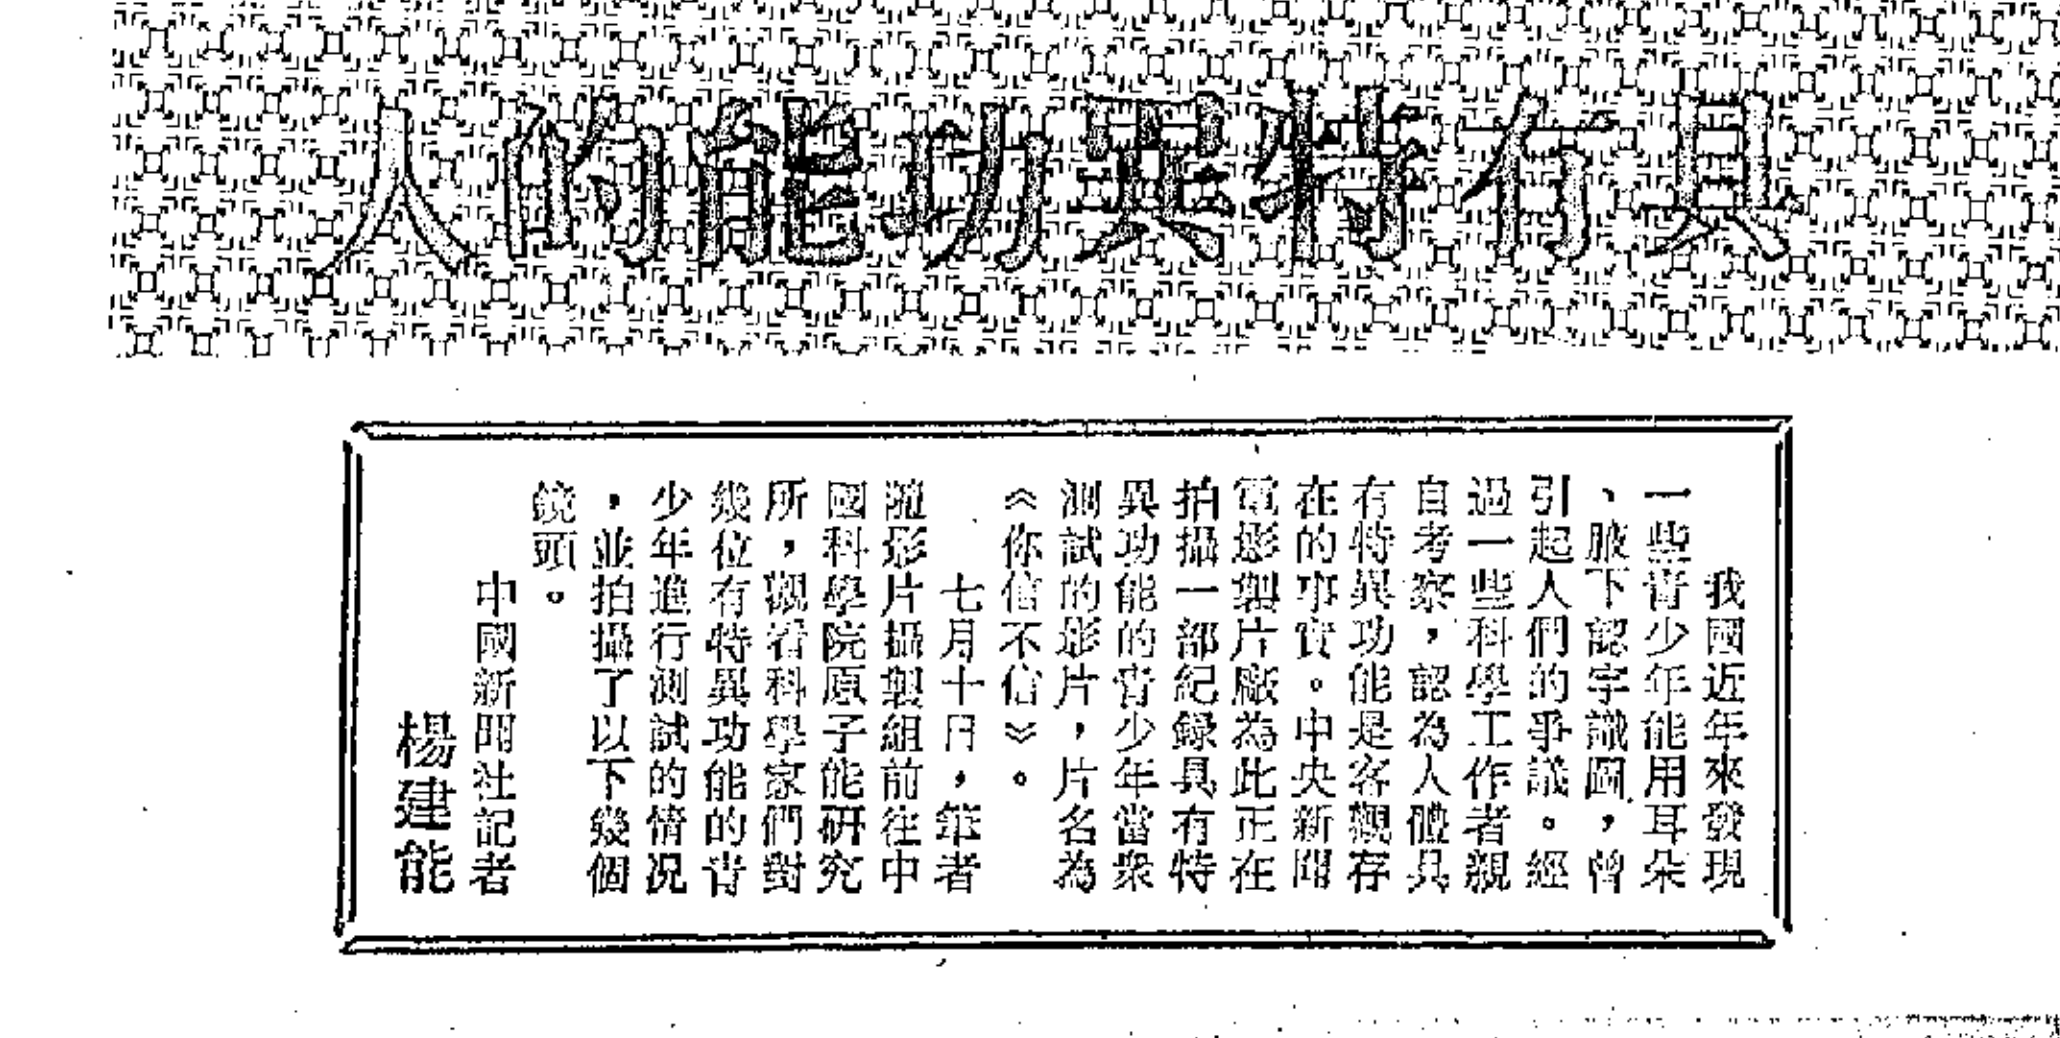 具有特異功能的人
我國近年來發現
一些青少年能用耳朵
、腋下認字識圖，曾
引起人們的爭議。經
過一些科學工作者親
自考察，認為人體具
有特異功能是客觀存
在的事實。中央新聞
電影製片廠為此正在
拍攝一部紀録具有特
異功能的青少年當衆
測試的影片，片名為
《你信不信》。
七月十日，筆者
隨影片攝製組前往中
國科學院原子能研究
所，觀看科學家們對
幾位有特異功能的青
少年進行測試的情况
，並拍攝了以下幾個
鏡頭。
中國新聞社記者
楊建能